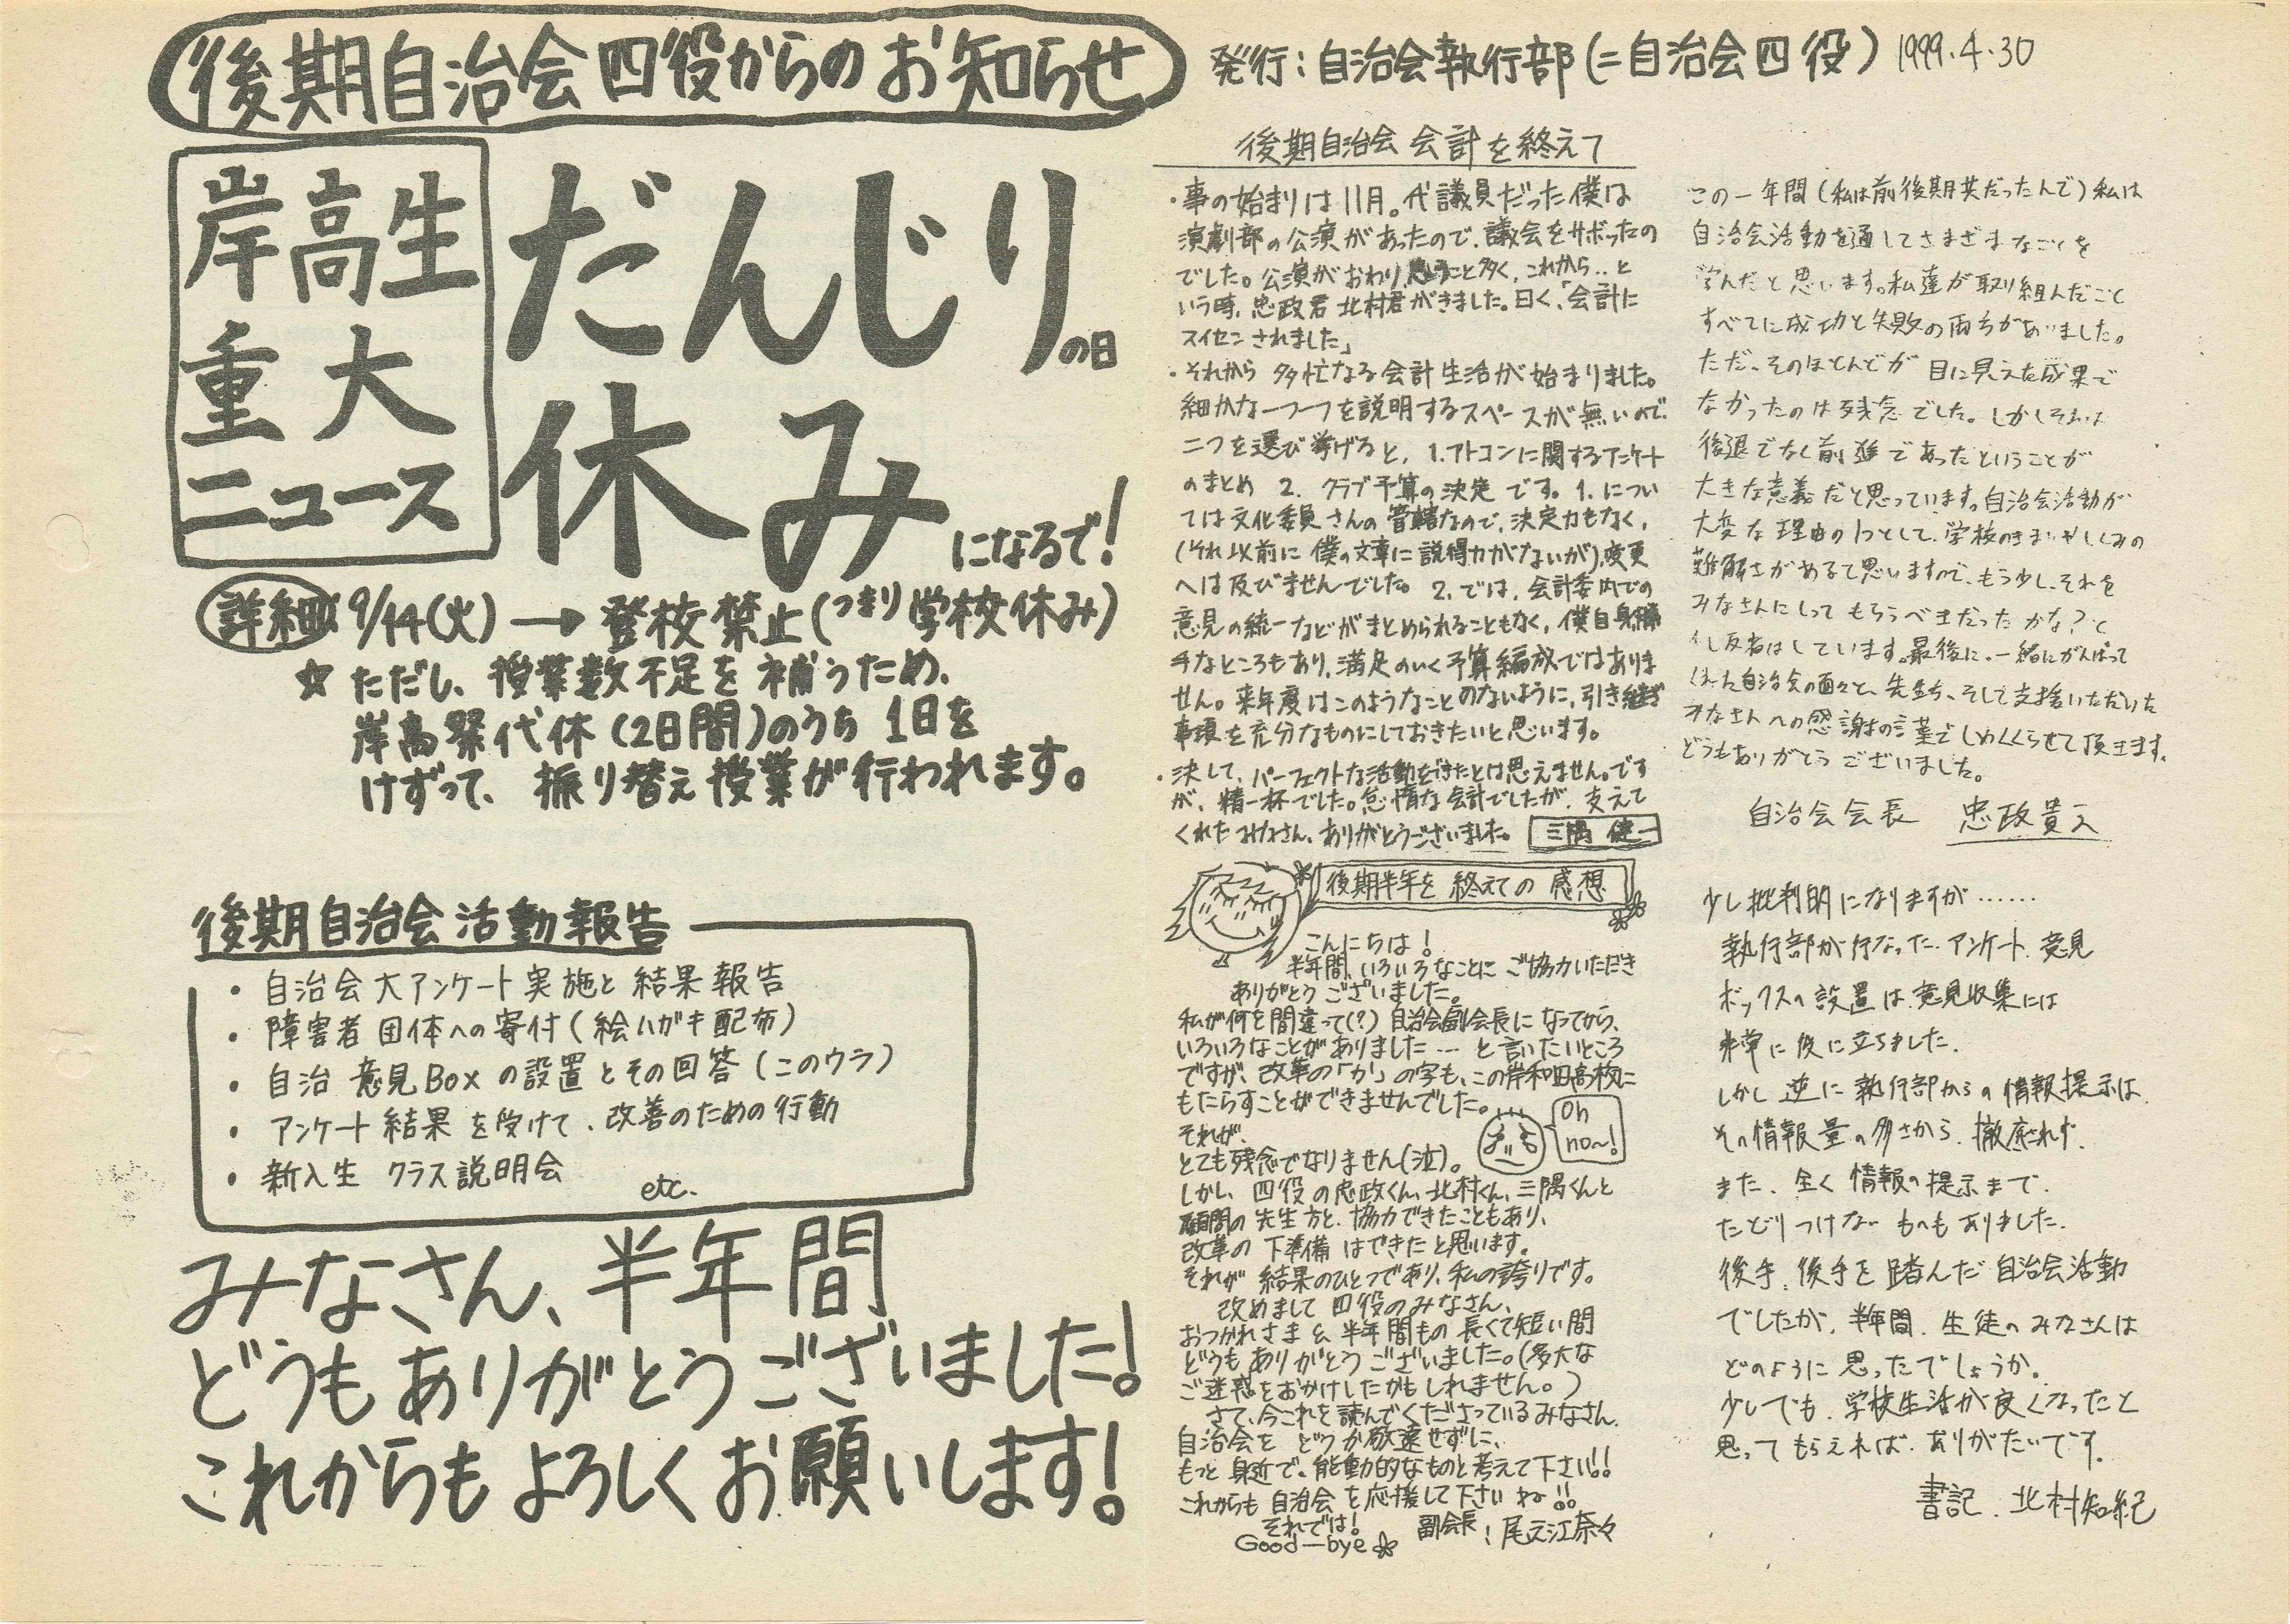 後期自治会四役からのお知らせ
発行：自治会執行部(=自治会四役) 1999.4.30
岸高生
重大
ニュース
だんじりの日
休みになるで!
詳細 9/14(火)→登校禁止(つまり学校休み)
☆ただし、授業数不足を補うため、
岸高祭代休(2日間)のうち1日を
けずって、振り替え授業が行われます。
後期自治会活動報告
・自治会大アンケート実施と結果報告
・障害者団体への寄付(絵ハガキ配布)
・自治意見Boxの設置とその回答(このウラ)
・アンケート結果を受けて、改善のための行動
・新入生クラス説明会
etc.
みなさん、半年間
どうもありがとうございました!
これからもよろしくお願いします!
後期自治会会計を終えて
・事の始まりは11月。代議員だった僕は
演劇部の公演があったので、議会をサボったの
でした。公演がおわり、思うこと多く、これから..と
いう時、忠政君北村君がきました。曰く、「会計に
スイセンされました」
・それから多忙なる会計生活が始まりました。
細かな一つ一つを説明するスペースが無いので、
二つを選び挙げると、1.アトコンに関するアンケート
のまとめ 2. クラブ予算の決定です。1.につい
ては文化委員さんの管轄なので、決定力もなく、
(それ以前に僕の文章に説得力がないが)、変更
へは及びませんでした。2.では、会計委内での
意見の統一などがまとめられることもなく、僕自身勝
手なところもあり、満足のいく予算編成ではありま
せん。来年度はこのようなことのないように、引き継ぎ
事項を充分なものにしておきたいと思います。
・決して、パーフェクトな活動をできたとは思えません。です
が、精一杯でした。怠惰な会計でしたが、支えて
くれたみなさん、ありがとうございました。 三隅健一
後期半年を終えての感想
こんにちは!
半年間、いろいろなことにご協力いただき
ありがとうございました。
私が何を間違って(?)自治会副会長になってから、
いろいろなことがありました…と言いたいところ
ですが、改革の「か」の字も、この岸和田高校に
もたらすことができませんでした。
Oh
no〜!
それが、
とても残念でなりません(泣)。
しかし、四役の忠政くん、北村くん、三隅くんと
顧問の先生方と、協力できたこともあり、
改革の下準備はできたと思います。
それが結果のひとつであり、私の誇りです。
改めまして四役のみなさん、
おつかれさま&半年間もの長くて短い間
どうもありがとうございました。(多大な
ご迷惑をおかけしたかもしれません。)
さて、今これを読んでくださっているみなさん、
自治会をどうか敬遠せずに、
もっと身近で、能動的なものと考えて下さい!!
これからも自治会を応援して下さいね!!
それでは!
Good-bye 副会長：尾之江奈々
この一年間(私は前後期共だったんで)私は
自治会活動を通してさまざまなことを
学んだと思います。私達が取り組んだこと
すべてに成功と失敗の両方がありました。
ただ、そのほとんどが目に見えた成果で
なかったのは残念でした。しかしそれは
後退でなく前進であったということが
大きな意義だと思っています。自治会活動が
大変な理由の1つとして、学校のきまりやしくみの
難解さがあると思いますので、もう少し、それを
みなさんにしってもらうべきだったかな?と
し反省はしています。最後に、一緒にがんばって
くれた自治会の面々と、先生方、そして支援いただいた
みなさんへの感謝の言葉でしめくくらせて頂きます。
どうもありがとうございました。
自治会会長 忠政貴
少し批判的になりますが……
執行部が行なったアンケート、意見
ボックスの設置は、意見収集には
非常に役に立ちました。
しかし逆に執行部からの情報提示は、
その情報量の多さから、徹底されず、
また、全く情報の提示まで、
たどりつけないものもありました。
後手、後手を踏んだ自治会活動
でしたが、半年間、生徒のみなさんは
どのように思ったでしょうか。
少しでも、学校生活が良くなったと
思ってもらえれば、ありがたいです。
書記 北村知紀